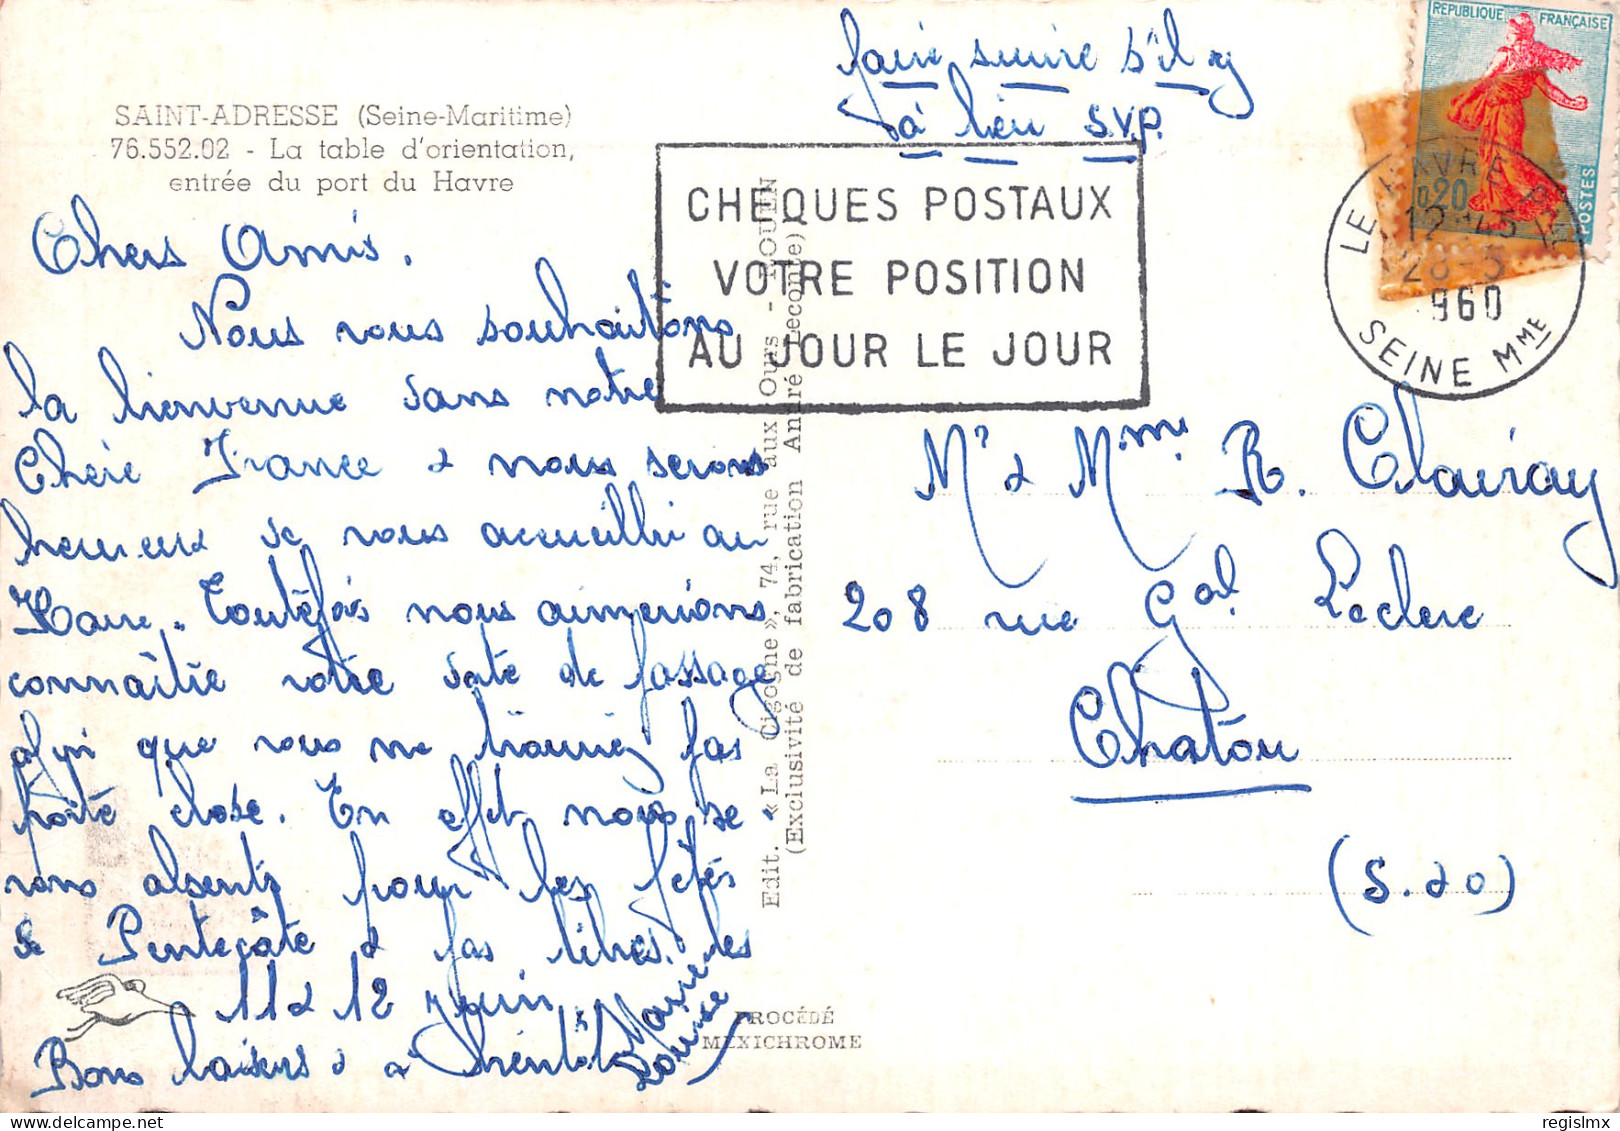 SAINT-ADRESSE (Seine-Maritime)
76.552.02 - La table d'orientation,
entrée du port du Havre
Chers Amis.
Nous vous souhaitons
la bienvenue dans notre
Chère France & nous serons
heureux de vous accueillir au
Havre. Toutefois nous aimerions
connaître votre date de passage
afin que vous ne trouviez pas
porte close. En effet nous se
rons absents pour les fêtes
de Pentecôte & pas libres les
11 & 12 juin.
Bons baisers & à bientôt
Marie
Louise
Edit. « La Cigogne », 74, rue aux Ours - ROUEN
(Exclusivité de fabrication André Leconte)
PROCÉDÉ
MEXICHROME
faire suivre s'il y
a lieu S.V.P.
CHEQUES POSTAUX
VOTRE POSITION
AU JOUR LE JOUR
REPUBLIQUE FRANÇAISE
0,20
POSTES
LE HAVRE
12 H45
28-5
1960
SEINE MME
Mr & Mme R. Clairay
208 rue Gal Leclerc
Chatou
(S. & O)
regislmx